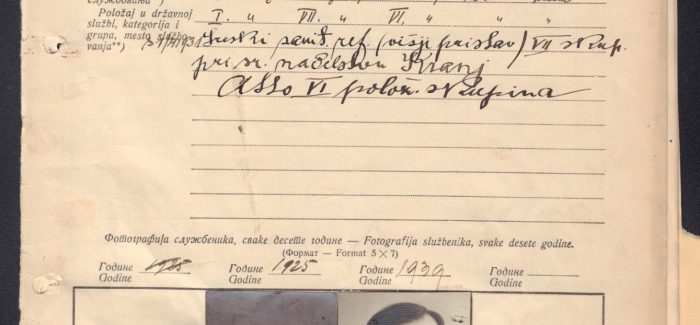 službovanja)
I. " VII. " VI. " " "
Položaj u državnoj
službi, kategorija i
grupa, mesto službo-
vanja**)
Sreski sanit. ref. (višji pristav) VII skup.
pri sr. načelstvu Kranj
VI polož. skupina
Фотографија службеника, сваке десете године — Fotografija službenika, svake desete godine.
(Формат — Format 5 × 7)
Године 1925 Године 1925 Године 1939 Године
Godine Godine Godine Godine